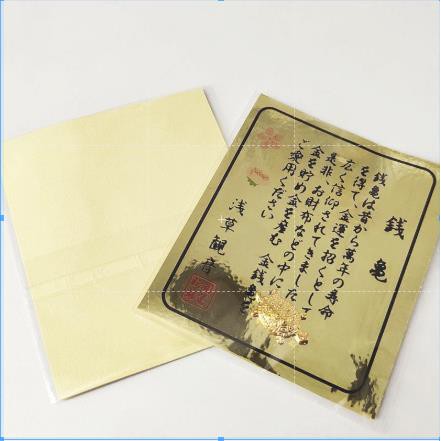 銭亀
銭亀は昔から萬年の寿命
を得て、金運を招くとして
広く信仰されてきました
是非、お財布などの中に
金を貯め金を産む 金銭亀を
ご愛用ください
浅草観音